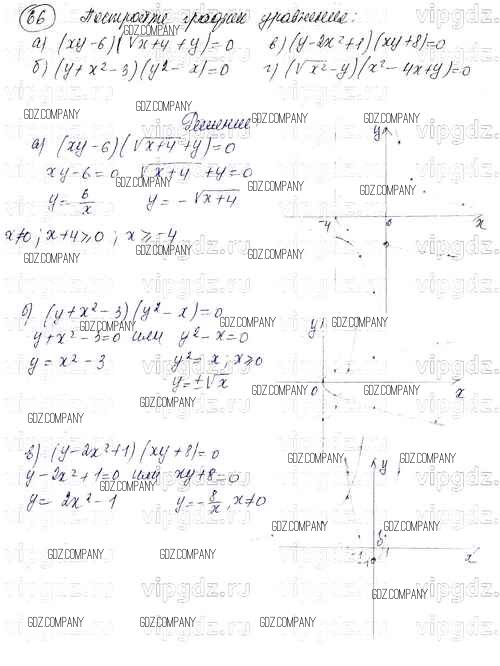 66 Постройте графики уравнения:
а) (xy-6)(√x+4+y)=0 в) (y-2x²+1)(xy+8)=0
б) (y+x²-3)(y²-x)=0 г) (√x²-y)(x²-4x+y)=0
Решение
а) (xy-6)(√x+4+y)=0
xy-6=0 √x+4+y=0
y=6/x y=-√x+4
x≠0; x+4≥0; x≥-4
б) (y+x²-3)(y²-x)=0
y+x²-3=0 или y²-x=0
y=x²-3 y²=x, x≥0
y=±√x
в) (y-2x²+1)(xy+8)=0
y-2x²+1=0 или xy+8=0
y=2x²-1 y=-8/x, x≠0
y
-4 0 x
y
0 x
y
1
-1 1 x
GDZ.COMPANY
vipgdz.ru